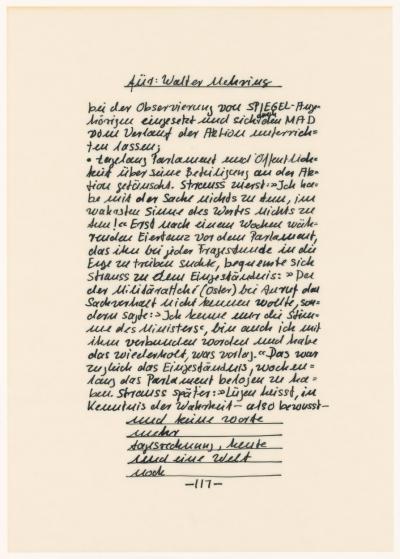 für: Walter Mehring
bei der Observierung von SPIEGEL-Ange-
hörigen eingesetzt und sich durch den MAD
vom Verlauf der Aktion unterrich=
ten lassen;
• tagelang Parlament und Öffentlich=
keit über seine Beteiligung an der Ak=
tion getäuscht. Strauss zuerst: »Ich ha=
be mit der Sache nichts zu tun, im
wahrsten Sinne des Wortes nichts zu
tun!« Erst nach einem Wochen wäh=
renden Eiertanz vor dem Parlament,
das ihn bei jeder Fragestunde in die
Enge zu treiben suchte, bequemte sich
Strauss zu dem Eingeständnis: »Da
der Militärattché (Oster) bei Anruf den
Sachverhalt nicht kennen wollte, son=
dern sagte: ›Ich kenne nur die Stim=
me des Ministers‹, bin auch ich mit
ihm verbunden worden und habe
das wiederholt, was vorlag.« Das war
zugleich das Eingeständnis, wochen=
lang das Parlament belogen zu ha=
ben. Strauss später: »Lügen heisst, in
Kenntnis der Wahrheit – also bewusst –
und keine Worte
mehr
tagesordnung, heute
und eine Welt
noch
–117–